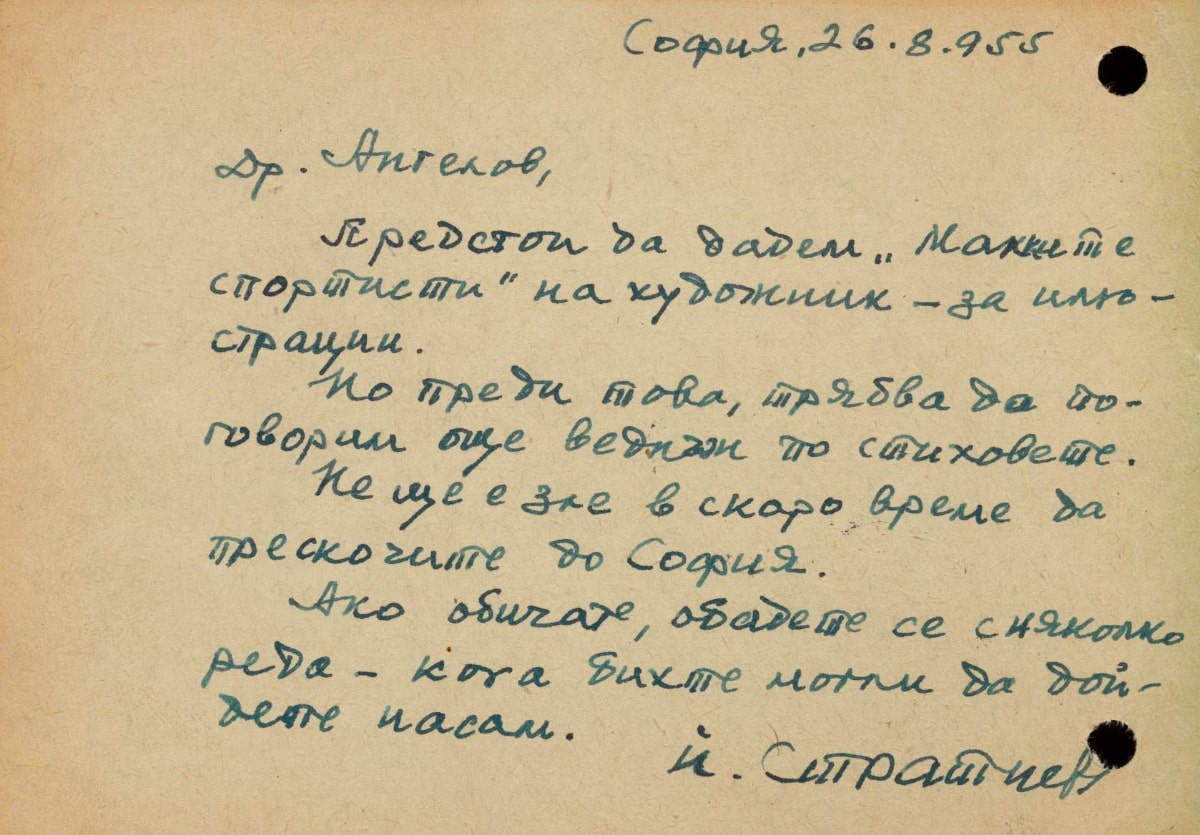 София, 26.8.955
Др. Ангелов,
Предстои да дадем „Малките
спортисти" на художник – за илю-
страции.
Но преди това, трябва да по-
говорим още веднъж по стиховете.
Не ще е зле в скоро време да
прескочите до София.
Ако обичате, обадете се с няколко
реда – кога бихте могли да дой-
дете насам.
Й. Стратиев